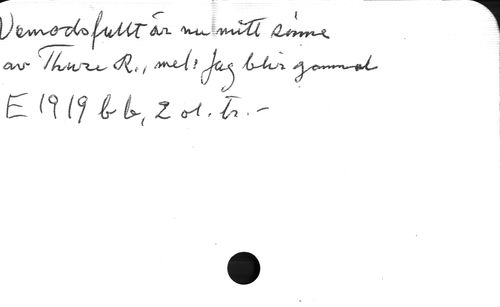 Vemodsfullt är nu mitt sinne
av Thure R., mel: Jag blir gammal
E 1919 bb, 2 ol. tr. -